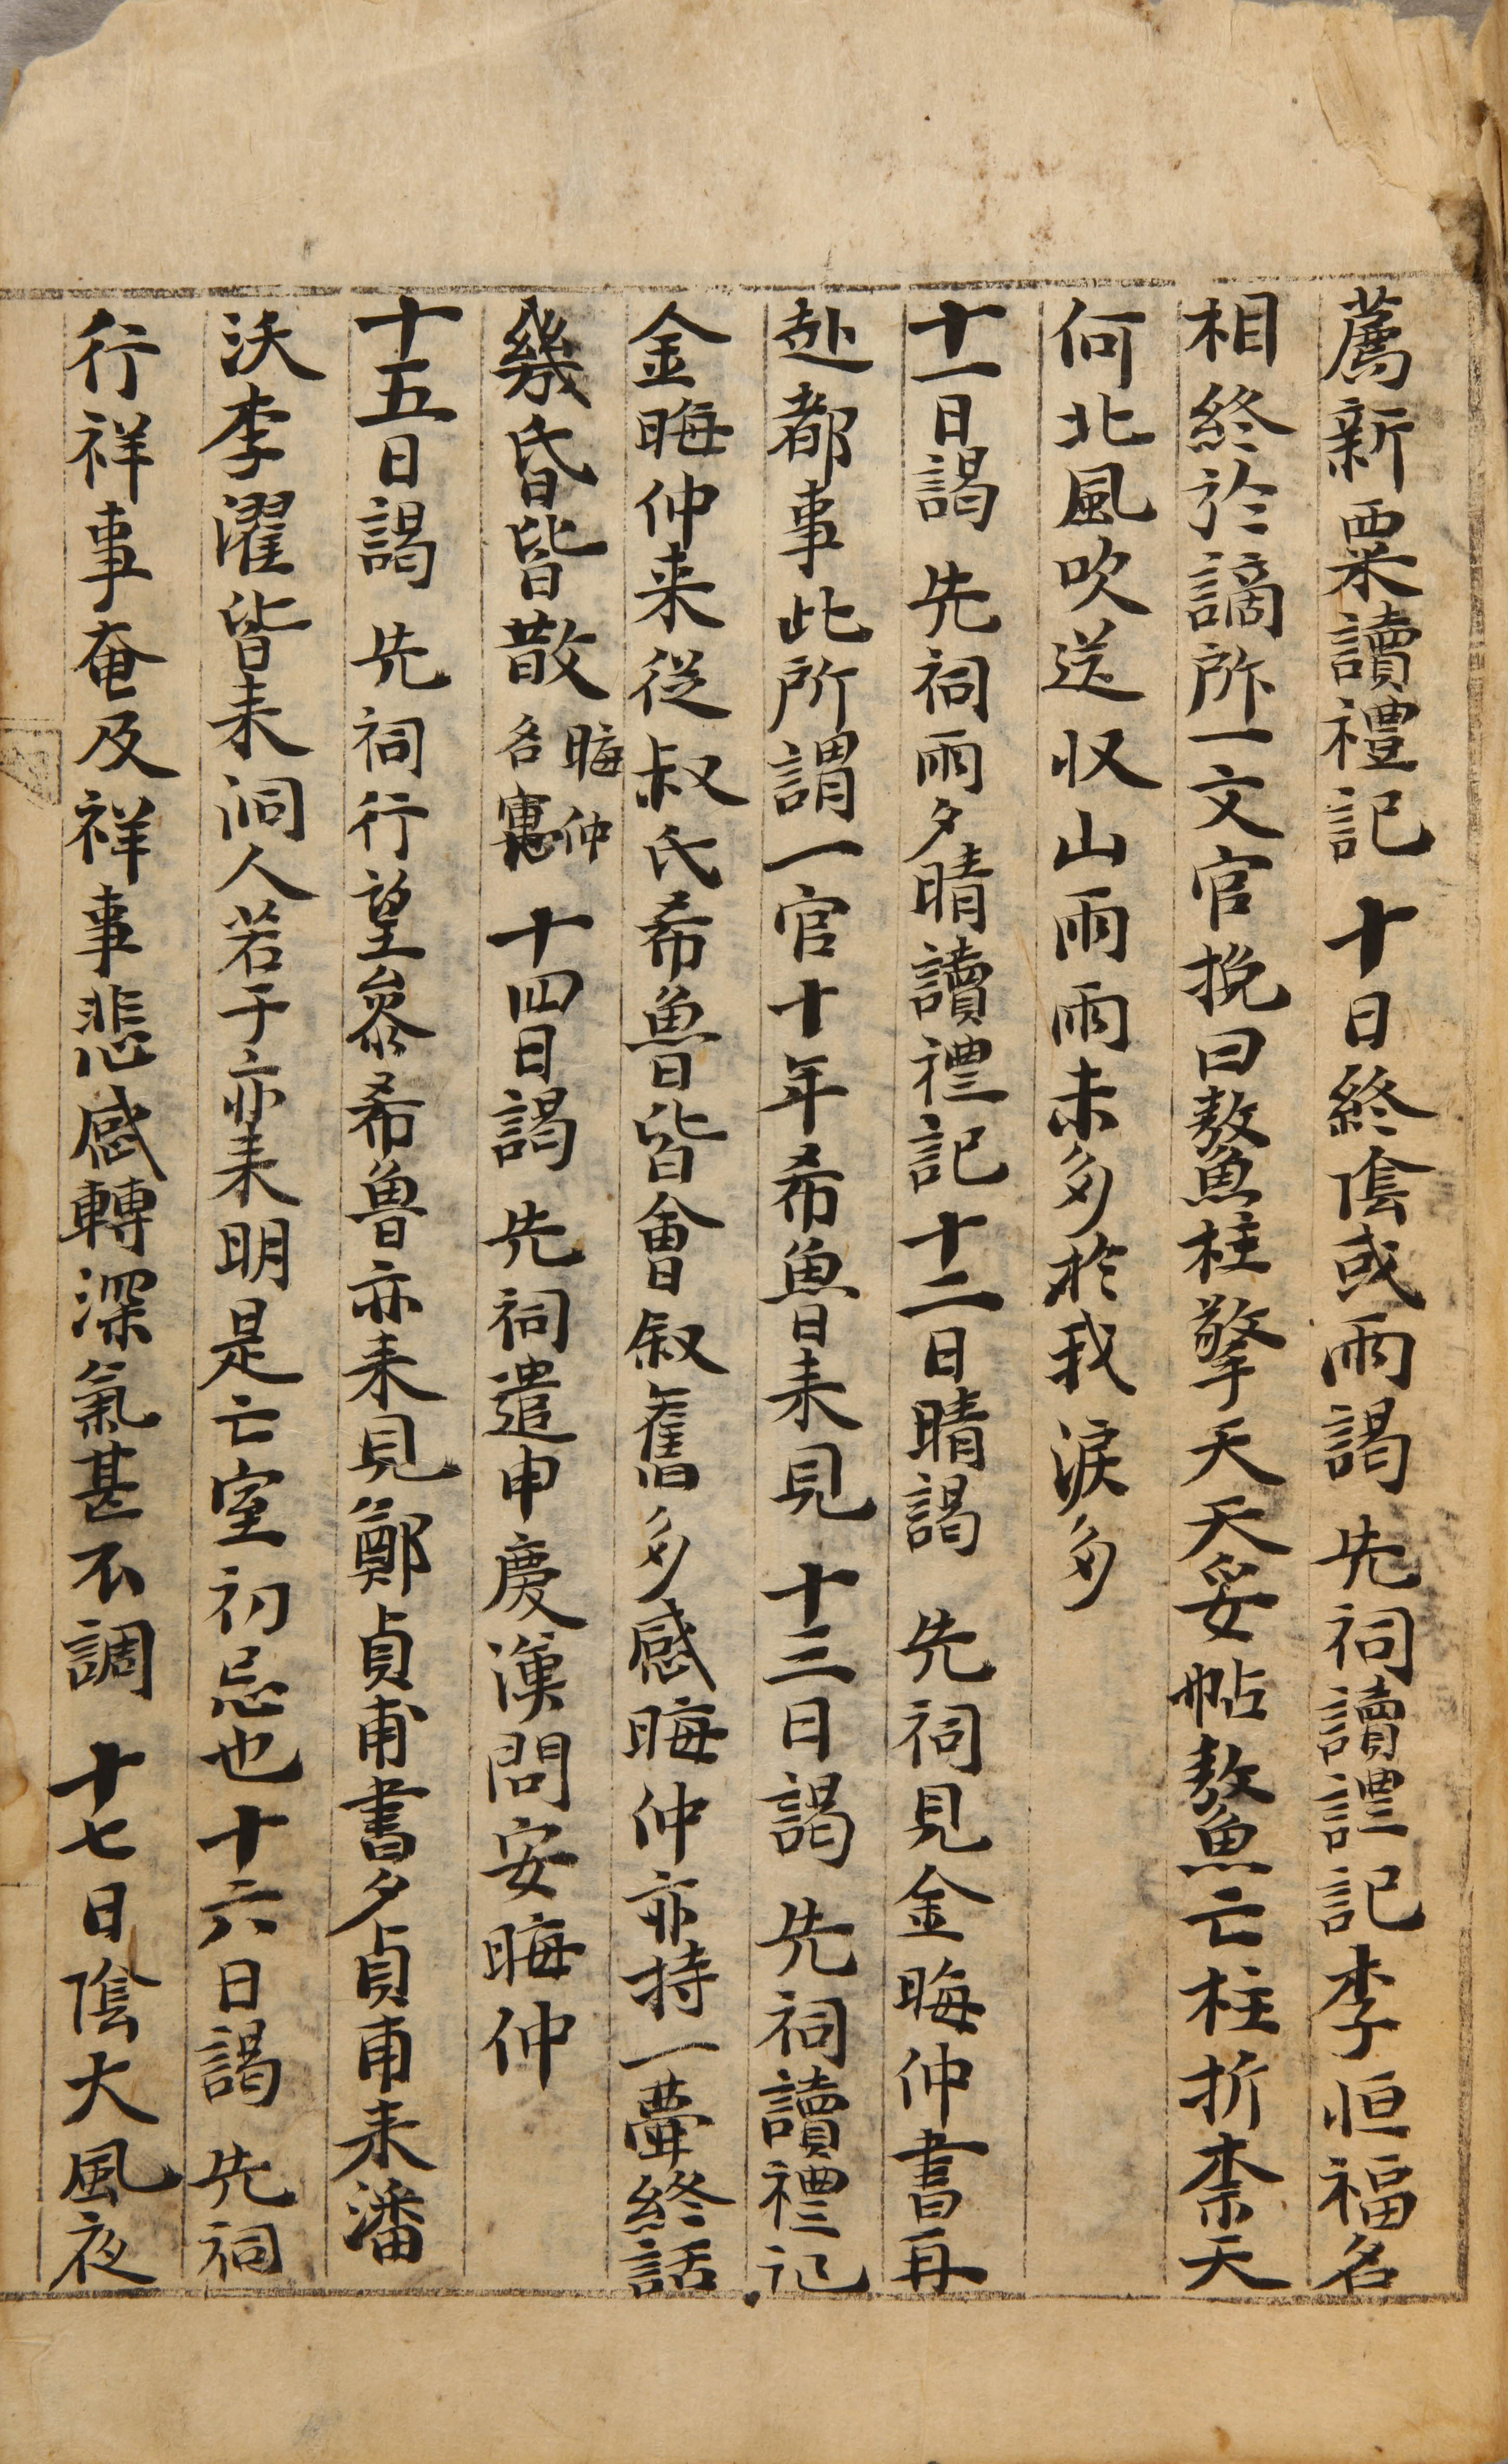 薦新粟讀禮記 十日終陰或雨謁 先祠讀禮記李恒福名
相終於謫所一文官挽曰鰲柱擎天天妥帖鰲亡柱折柰天
何北風吹送收山雨雨未多於我淚多
十一日謁 先祠雨夕晴讀禮記十二日晴謁 先祠見金晦仲書再
赴都事此所謂一官十年希魯來見 十三日謁 先祠讀禮記
金晦仲来從叔氏希魯皆會叙舊多感晦仲亦持一壷終話
幾昏皆散晦仲各寓 十四日謁 先祠遣申慶漢問安晦仲
十五日謁 先祠行望叅希魯亦来見鄭貞甫書夕貞甫来潘
沃李濯皆来洞人若干亦来明是亡室初忌也十六日謁 先祠
行祥事奄及祥事悲感轉深氣甚不調 十七日陰大風夜